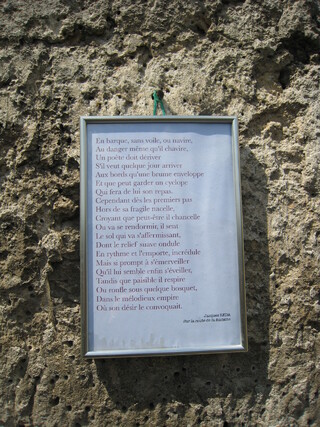 En barque, sans voile, ou navire,
Au danger même qu'il chavire,
Un poète doit dériver
S'il veut quelque jour arriver
Aux bords qu'une brume enveloppe
Et que peut garder un cyclope
Qui fera de lui son repas.
Cependant dès les premiers pas
Hors de sa fragile nacelle,
Croyant que peut-être il chancelle
Ou va se rendormir, il sent
Le sol qui va s'affermissant,
Dont le relief suave ondule
En rythme et l'emporte, incrédule
Mais si prompt à s'émerveiller
Qu'il lui semble enfin s'éveiller,
Tandis que paisible il respire
Ou ronfle sous quelque bosquet,
Dans le mélodieux empire
Où son désir le convoquait.
Jacques RÉDA